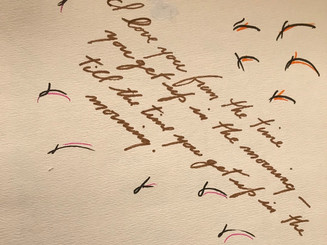 I love you from the time
you get up in the morning -
till the time you get up in the
morning.